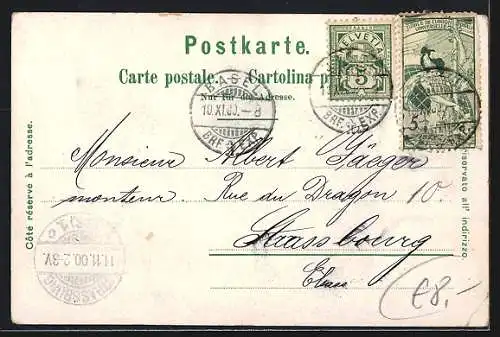 Postkarte.
Carte postale. Cartolina p
Nur für die Adresse.
HELVETIA
5
UNIVERSELLE
5
BASEL
10.XI.00.–8
BRF. EXP.
BRF. EXP.
Monsieur Albert Jaeger
monteur Rue du Dragon 10.
Strassbourg
Elsass
Côté réservé à l'adresse.
riservato all' indirizzo.
STRASSBURG
11.11.00.2-3V.
€8,-